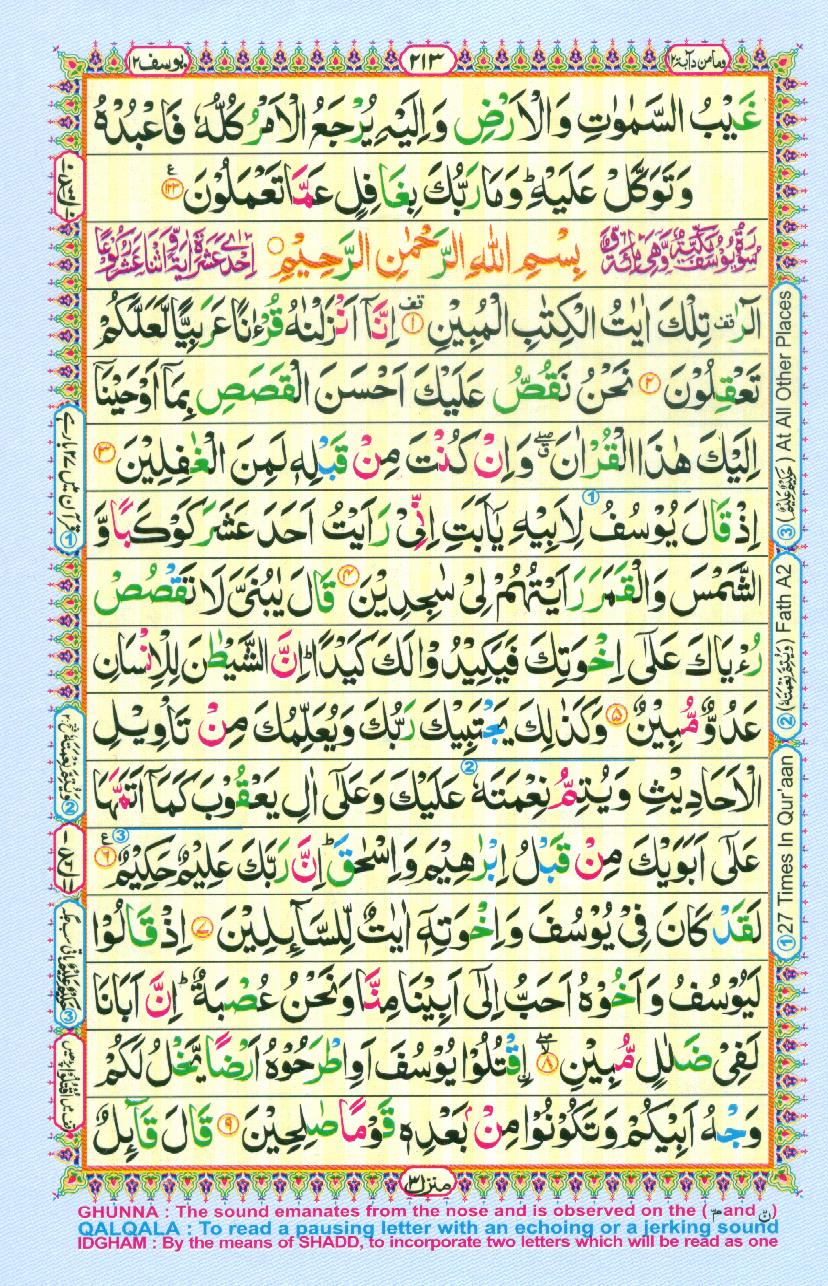 وما من دآبة ١٢
٢١٣
يوسف ١٢
غَيْبُ السَّمٰوٰتِ وَالْاَرْضِ وَاِلَيْهِ يُرْجَعُ الْاَمْرُ كُلُّهٗ فَاعْبُدْهُ
وَتَوَكَّلْ عَلَيْهِ ؕ وَمَا رَبُّكَ بِغَافِلٍ عَمَّا تَعْمَلُوْنَ ﴿۱۲۳﴾ ع
بِسْمِ اللهِ الرَّحْمٰنِ الرَّحِيْمِ
الٓرٰ تف تِلْكَ اٰيٰتُ الْكِتٰبِ الْمُبِيْنِ ﴿۱﴾ تف اِنَّآ اَنْزَلْنٰهُ قُرْءٰنًا عَرَبِيًّا لَّعَلَّكُمْ
تَعْقِلُوْنَ ﴿۲﴾ نَحْنُ نَقُصُّ عَلَيْكَ اَحْسَنَ الْقَصَصِ بِمَآ اَوْحَيْنَآ
اِلَيْكَ هٰذَا الْقُرْاٰنَ ۖق وَاِنْ كُنْتَ مِنْ قَبْلِهٖ لَمِنَ الْغٰفِلِيْنَ ﴿۳﴾
اِذْ قَالَ يُوْسُفُ لِاَبِيْهِ يٰۤاَبَتِ اِنِّيْ رَاَيْتُ اَحَدَ عَشَرَ كَوْكَبًا وَّ
الشَّمْسَ وَالْقَمَرَ رَاَيْتُهُمْ لِيْ سٰجِدِيْنَ ﴿۴﴾ قَالَ يٰبُنَيَّ لَا تَقْصُصْ
رُءْيَاكَ عَلٰۤى اِخْوَتِكَ فَيَكِيْدُوْا لَكَ كَيْدًا ؕ اِنَّ الشَّيْطٰنَ لِلْاِنْسَانِ
عَدُوٌّ مُّبِيْنٌ ﴿۵﴾ وَكَذٰلِكَ يَجْتَبِيْكَ رَبُّكَ وَيُعَلِّمُكَ مِنْ تَاْوِيْلِ
الْاَحَادِيْثِ وَيُتِمُّ نِعْمَتَهٗ عَلَيْكَ وَعَلٰۤى اٰلِ يَعْقُوْبَ كَمَاۤ اَتَمَّهَا
عَلٰۤى اَبَوَيْكَ مِنْ قَبْلُ اِبْرٰهِيْمَ وَاِسْحٰقَ ؕ اِنَّ رَبَّكَ عَلِيْمٌ حَكِيْمٌ ﴿۶﴾ ع
لَقَدْ كَانَ فِيْ يُوْسُفَ وَاِخْوَتِهٖۤ اٰيٰتٌ لِّلسَّآىِٕلِيْنَ ﴿۷﴾ اِذْ قَالُوْا
لَيُوْسُفُ وَاَخُوْهُ اَحَبُّ اِلٰۤى اَبِيْنَا مِنَّا وَنَحْنُ عُصْبَةٌ ؕ اِنَّ اَبَانَا
لَفِيْ ضَلٰلٍ مُّبِيْنٍ ﴿۸﴾ اقْتُلُوْا يُوْسُفَ اَوِ اطْرَحُوْهُ اَرْضًا يَّخْلُ لَكُمْ
وَجْهُ اَبِيْكُمْ وَتَكُوْنُوْا مِنْۢ بَعْدِهٖ قَوْمًا صٰلِحِيْنَ ﴿۹﴾ قَالَ قَآىِٕلٌ
منزل ۳
① 27 Times In Qur'aan
② (وَيُتِمَّ نِعْمَتَهٗ) Fath A2
③ (حَكِيْمٌ عَلِيْمٌ) At All Other Places
GHUNNA : The sound emanates from the nose and is observed on the ( مّ and نّ )
QALQALA : To read a pausing letter with an echoing or a jerking sound
IDGHAM : By the means of SHADD, to incorporate two letters which will be read as one